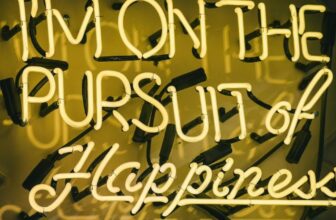 I'M ON THE
PURSUIT of
Happiness